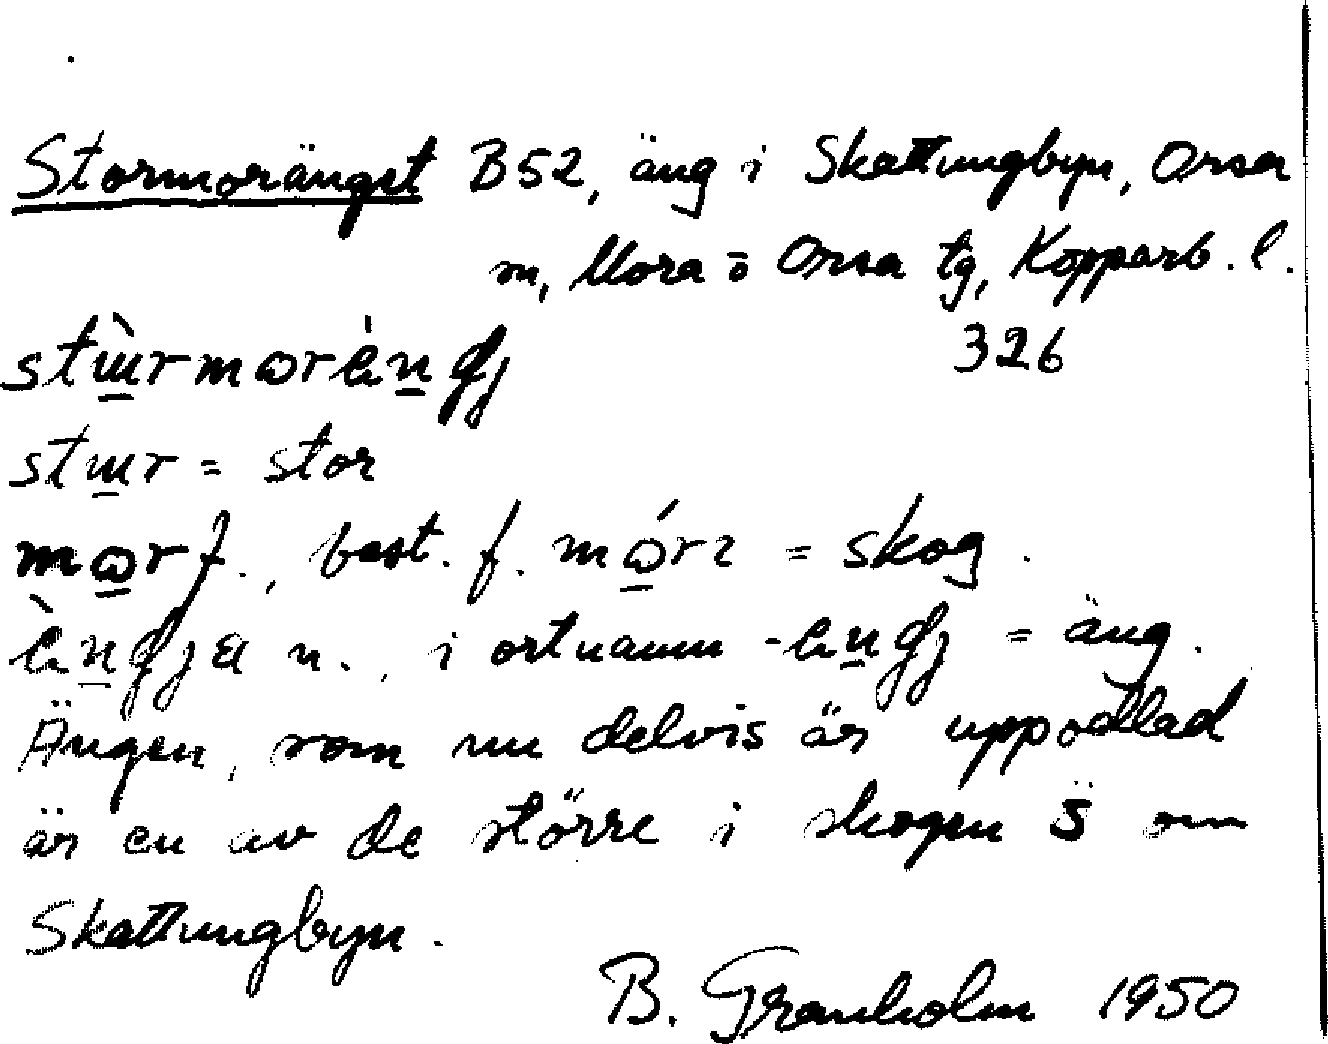 Stormorängst B52, äng i Skattungbyn, Orsa
m, Mora o Orsa tg, Kopparb. l.
326
stɯ̱̀rmωrèṉɠj
stɯ̱r = stor
mω̱r f., best. f. mώ̱rɪ = skog.
èṉɠja n., i ortnamn -eṉɠj = äng.
Ängen, som nu delvis är uppodlad
är en av de större i skogen S om
Skattungbyn.
B. Granholm 1950